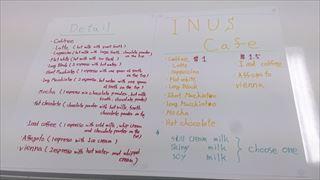 Detail
- Coffee
- Latte ( hot milk with small froth)
- Cappuccino ( hot milk with large froth, chocolate powder on the top)
- Flat white ( hot milk with no froth)
- Long Black ( espresso with hot water)
- Short Macchiato ( espresso with one spoon of froth on the top)
- Long Macchiato ( 2 espresso with one spoon of froth on the top)
- Mocha ( espresso with chocolate powder, hot milk froth, chocolate powder)
- Hot chocolate ( chocolate powder with hot milk, froth, chocolate powder on top)
- Iced coffee ( espresso with cold milk, whip cream and chocolate powder on the top)
- Affogato ( espresso with ice cream )
- Vienna ( 2 espresso with hot water and whipped cream)
INUS
Cafe
- Coffee $1
Latte
Cappuccino
Flat white
Long Black
Short Macchiato
Long Macchiato
Mocha
Hot chocolate
$1.5
Iced coffee
Affogato
Vienna
full cream milk
Skinny milk
Soy milk
choose one